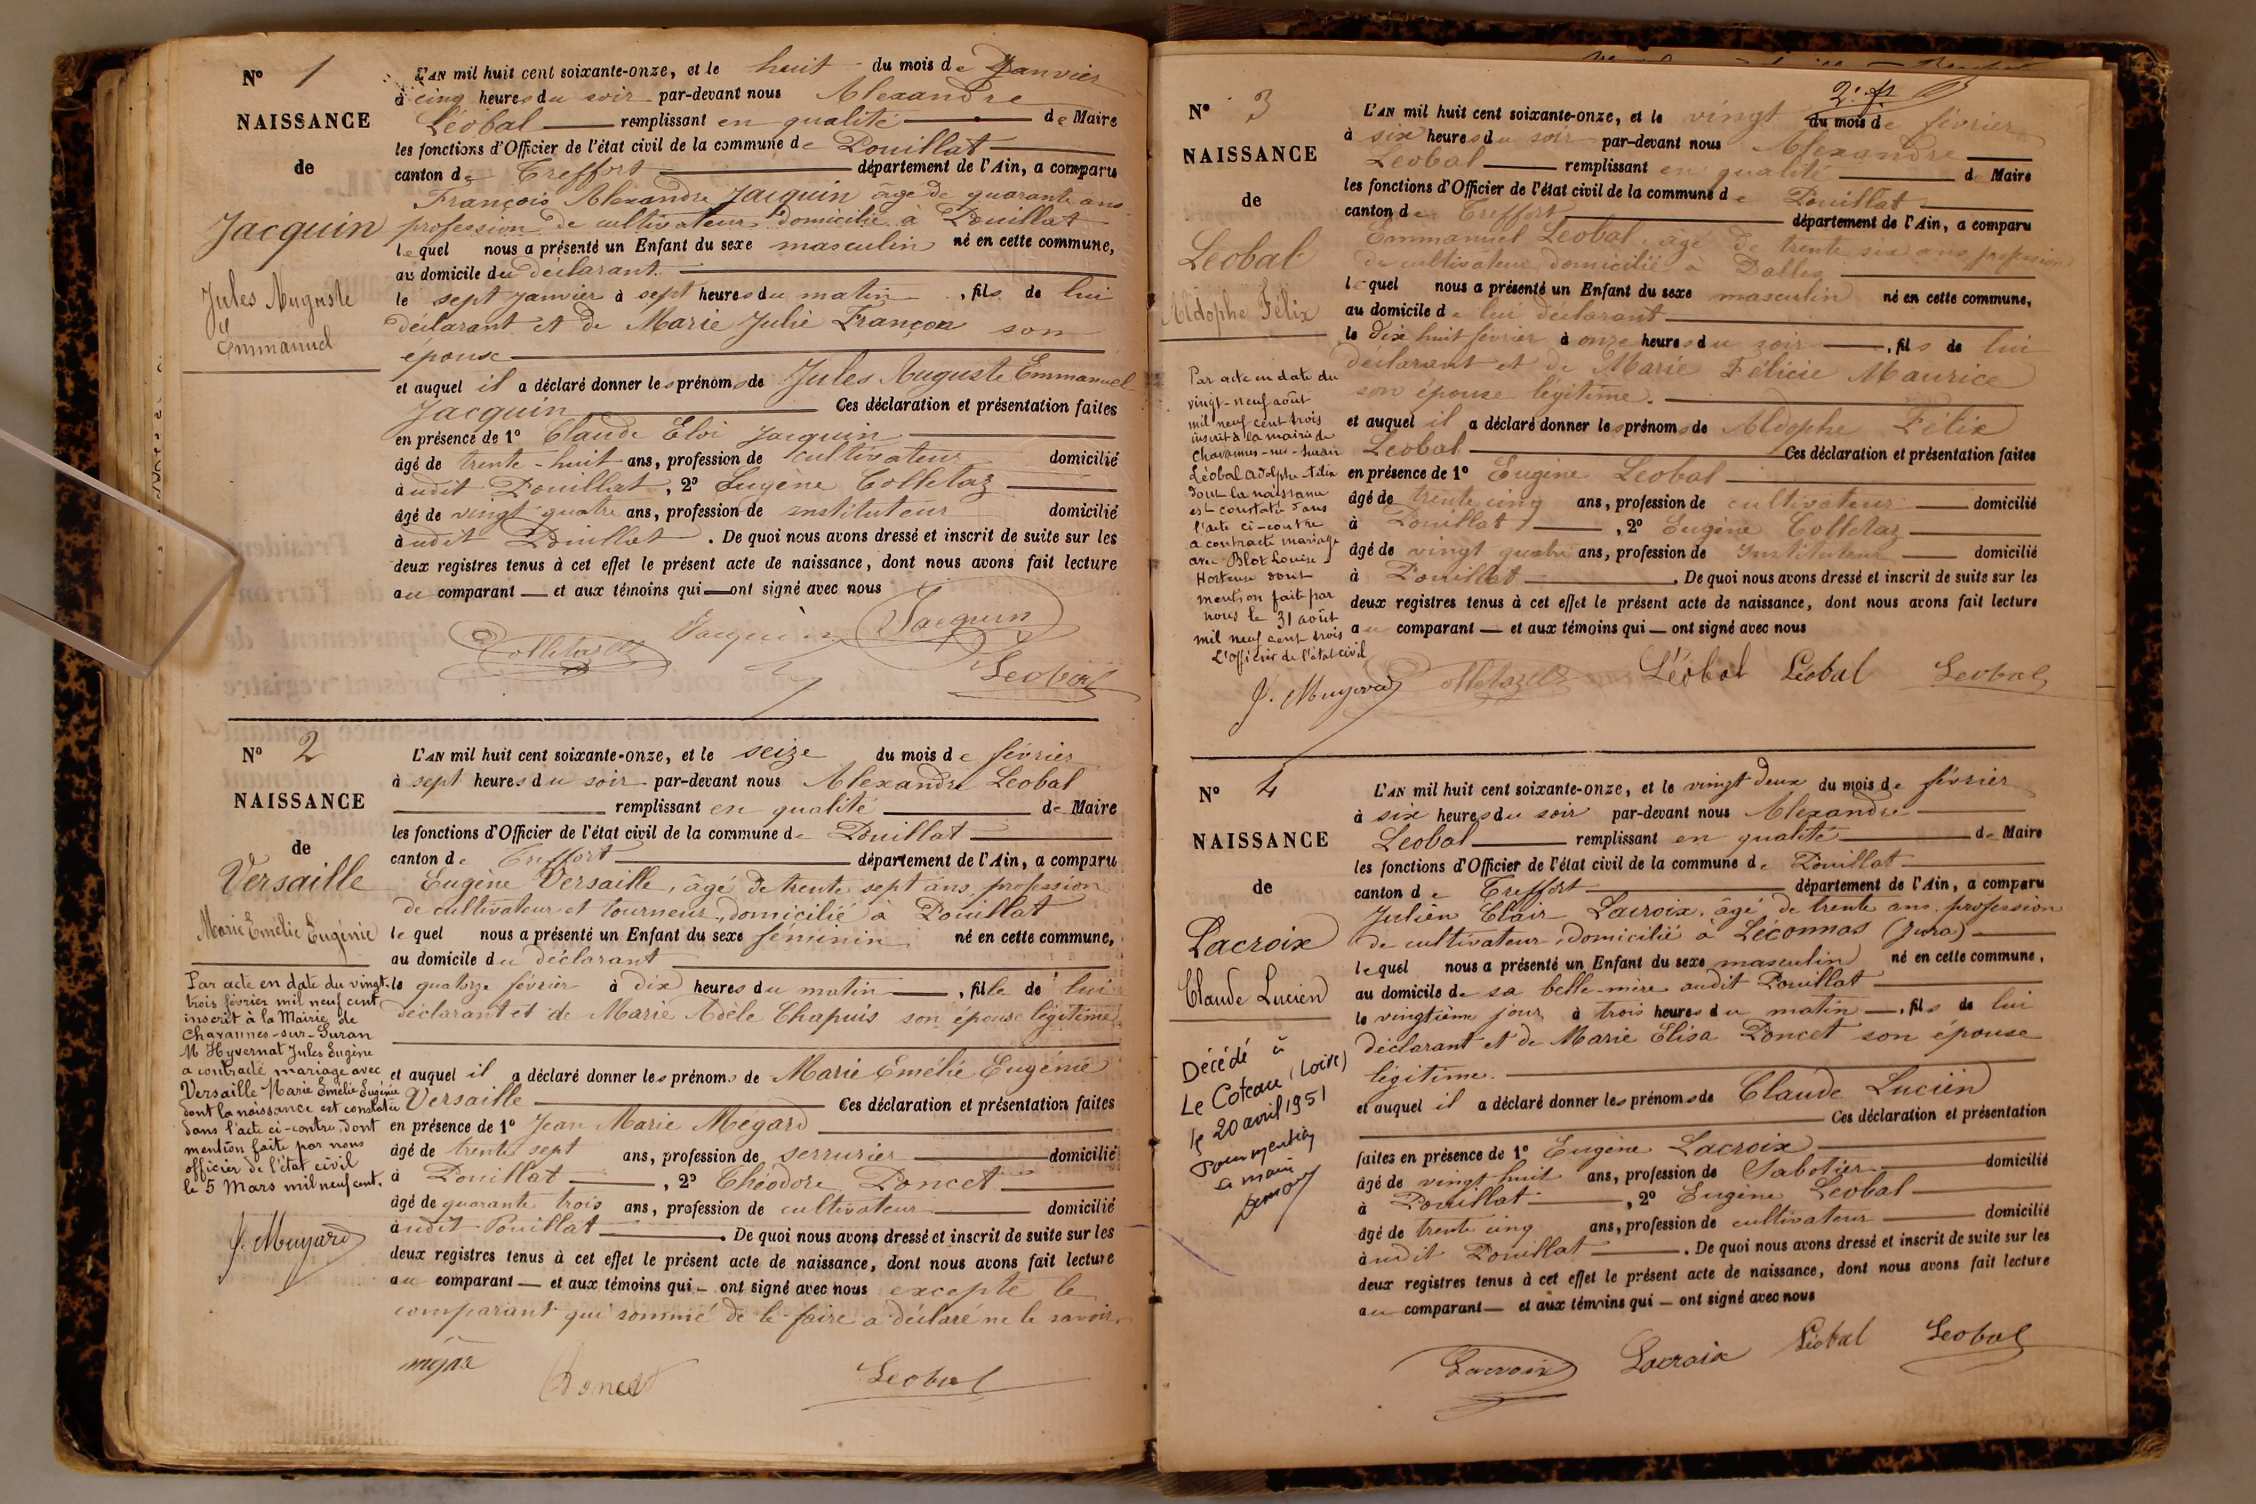 N° 1
NAISSANCE
de
Jacquin
Jules Auguste
Emmanuel
L'AN mil huit cent soixante-onze, et le huit du mois de Janvier
à cinq heures du soir par-devant nous Alexandre
Léobal remplissant en qualité de Maire
les fonctions d'Officier de l'état civil de la commune de Pouillat
canton de Treffort département de l'Ain, a comparu
François Alexandre Jacquin âgé de quarante ans
profession de cultivateur domicilié à Pouillat
lequel nous a présenté un Enfant du sexe masculin né en cette commune,
au domicile du déclarant
le sept janvier à sept heures du matin, fils de lui
déclarant et de Marie Julie Françon son
épouse
et auquel il a déclaré donner les prénoms de Jules Auguste Emmanuel
Jacquin Ces déclaration et présentation faites
en présence de 1° Claude Eloi Jacquin
âgé de trente-huit ans, profession de cultivateur domicilié
audit Pouillat, 2° Eugène Colletaz
âgé de vingt quatre ans, profession de instituteur domicilié
audit Pouillat. De quoi nous avons dressé et inscrit de suite sur les
deux registres tenus à cet effet le présent acte de naissance, dont nous avons fait lecture
au comparant et aux témoins qui ont signé avec nous
Colletaz Jacquin Jacquin
Leobal
N° 2
NAISSANCE
de
Versaille
Marie Emélie Eugénie
Par acte en date du vingt-
trois février mil neuf cent
inscrit à la Mairie de
Chavannes-sur-Suran
M Hyvernat Jules Eugène
a contracté mariage avec
Versaille Marie Emélie Eugénie
dont la naissance est constatée
dans l'acte ci-contre, dont
mention faite par nous
officier de l'état civil
le 5 Mars mil neuf cent.
J. Muyard
L'AN mil huit cent soixante-onze, et le seize du mois de février
à sept heures du soir par-devant nous Alexandre Leobal
remplissant en qualité de Maire
les fonctions d'Officier de l'état civil de la commune de Pouillat
canton de Treffort département de l'Ain, a comparu
Eugène Versaille, âgé de trente sept ans, profession
de cultivateur et tourneur, domicilié à Pouillat
lequel nous a présenté un Enfant du sexe féminin né en cette commune,
au domicile du déclarant
le quatorze février à dix heures du matin, fille de lui
déclarant et de Marie Adèle Chapuis son épouse légitime
et auquel il a déclaré donner les prénoms de Marie Emélie Eugénie
Versaille Ces déclaration et présentation faites
en présence de 1° Jean Marie Mégard
âgé de trente sept ans, profession de serrurier domicilié
à Pouillat, 2° Théodore Poncet
âgé de quarante trois ans, profession de cultivateur domicilié
audit Pouillat. De quoi nous avons dressé et inscrit de suite sur les
deux registres tenus à cet effet le présent acte de naissance, dont nous avons fait lecture
au comparant et aux témoins qui ont signé avec nous excepté le
comparant qui sommé de le faire a déclaré ne le savoir
Poncet Leobal
N° 3
NAISSANCE
de
Leobal
Aldophe Félix
Par acte en date du
vingt-neuf août
mil neuf cent trois
inscrit à la mairie de
Chavannes-sur-Suran
Léobal Adolphe Félix
dont la naissance
est constatée dans
l'acte ci-contre
a contracté mariage
avec Blot Louise
Hortense dont
mention fait par
nous le 31 août
mil neuf cent trois
L'officier de l'état civil
J. Muyard
L'AN mil huit cent soixante-onze, et le vingt du mois de février
à six heures du soir par-devant nous Alexandre
Leobal remplissant en qualité de Maire
les fonctions d'Officier de l'état civil de la commune de Pouillat
canton de Treffort département de l'Ain, a comparu
Emmanuel Leobal, âgé de trente six ans, profession
de cultivateur, domicilié à Dalles
lequel nous a présenté un Enfant du sexe masculin né en cette commune,
au domicile de lui déclarant
le dix huit février à onze heures du soir, fils de lui
déclarant et de Marie Félicie Maurice
son épouse légitime.
et auquel il a déclaré donner les prénoms de Aldophe Félix
Leobal Ces déclaration et présentation faites
en présence de 1° Eugène Leobal
âgé de trente cinq ans, profession de cultivateur domicilié
à Pouillat, 2° Eugène Colletaz
âgé de vingt quatre ans, profession de Instituteur domicilié
à Pouillat. De quoi nous avons dressé et inscrit de suite sur les
deux registres tenus à cet effet le présent acte de naissance, dont nous avons fait lecture
au comparant et aux témoins qui ont signé avec nous
Colletaz Léobal Léobal Leobal
N° 4
NAISSANCE
de
Lacroix
Claude Lucien
Décédé à
Le Coteau (Loire)
le 20 avril 1951
Pour mention
L'AN mil huit cent soixante-onze, et le vingt deux du mois de février
à six heures du soir par-devant nous Alexandre
Leobal remplissant en qualité de Maire
les fonctions d'Officier de l'état civil de la commune de Pouillat
canton de Treffort département de l'Ain, a comparu
Julien Clair Lacroix, âgé de trente ans, profession
de cultivateur, domicilié à Léconnas (Jura)
lequel nous a présenté un Enfant du sexe masculin né en cette commune,
au domicile de sa belle-mère audit Pouillat
le vingtième jour à trois heures du matin, fils de lui
déclarant et de Marie Elisa Poncet son épouse
légitime.
et auquel il a déclaré donner les prénoms de Claude Lucien
Ces déclaration et présentation
faites en présence de 1° Eugène Lacroix
âgé de vingt huit ans, profession de Sabotier domicilié
à Pouillat, 2° Eugène Leobal
âgé de trente cinq ans, profession de cultivateur domicilié
audit Pouillat. De quoi nous avons dressé et inscrit de suite sur les
deux registres tenus à cet effet le présent acte de naissance, dont nous avons fait lecture
au comparant et aux témoins qui ont signé avec nous
Lacroix Lacroix Léobal Leobal